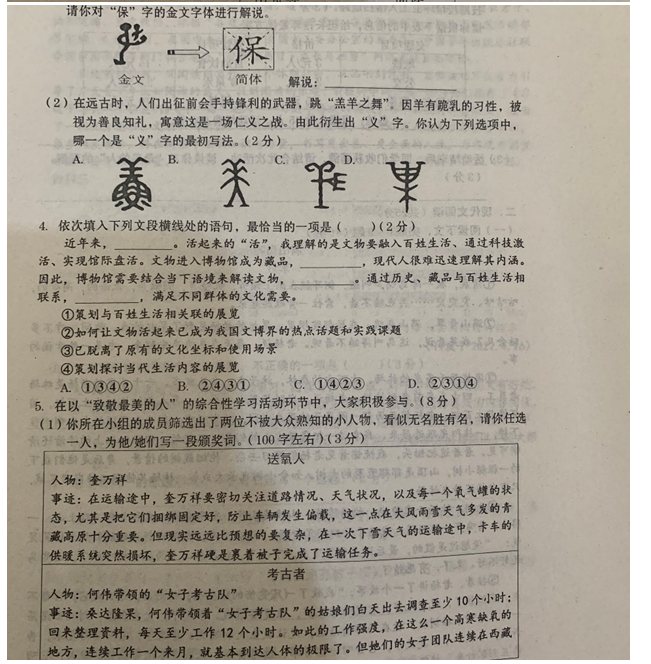 请你对“保”字的金文字体进行解说。
保
金文 简体 解说：
（2）在远古时，人们出征前会手持锋利的武器，跳“羔羊之舞”。因羊有跪乳的习性，被
视为善良知礼，寓意这是一场仁义之战。由此衍生出“义”字。你认为下列选项中，
哪一个是“义”字的最初写法。（2分）
A. B. C. D.
4. 依次填入下列文段横线处的语句，最恰当的一项是（ ）（2分）
近年来，________。活起来的“活”，我理解的是文物要融入百姓生活、通过科技激
活、实现馆际盘活。文物进入博物馆成为藏品，________，现代人很难迅速理解其内涵。
因此，博物馆需要结合当下语境来解读文物，________。通过历史、藏品与百姓生活相
联系，________，满足不同群体的文化需要。
①策划与百姓生活相关联的展览
②如何让文物活起来已成为我国文博界的热点话题和实践课题
③已脱离了原有的文化坐标和使用场景
④策划探讨当代生活内容的展览
A. ①③④② B. ②④③① C. ①④②③ D. ②③①④
5. 在以“致敬最美的人”的综合性学习活动环节中，大家积极参与。（8分）
（1）你所在小组的成员筛选出了两位不被大众熟知的小人物、看似无名胜有名，请你任选
一人，为他/她们写一段颁奖词。（100字左右）（3分）
送氧人
人物：奎万祥
事迹：在运输途中，奎万祥要密切关注道路情况、天气状况，以及每一个氧气罐的状
态，尤其是把它们捆绑固定好，防止车辆发生偏载，这一点在大风雨雪天气多发的青
藏高原十分重要。但现实远远比预想的要复杂，在一次下雪天气的运输途中，卡车的
供暖系统突然损坏，奎万祥硬是裹着被子完成了运输任务。
考古者
人物：何伟带领的“女子考古队”
事迹：桑达隆果，何伟带领着“女子考古队”的姑娘们白天出去调查至少10个小时；
回来整理资料，每天至少工作12个小时。如此的工作强度，在这么一个高寒缺氧的
地方，连续工作一个来月，就基本到达人体的极限了。但她们的女子团队连续在西藏